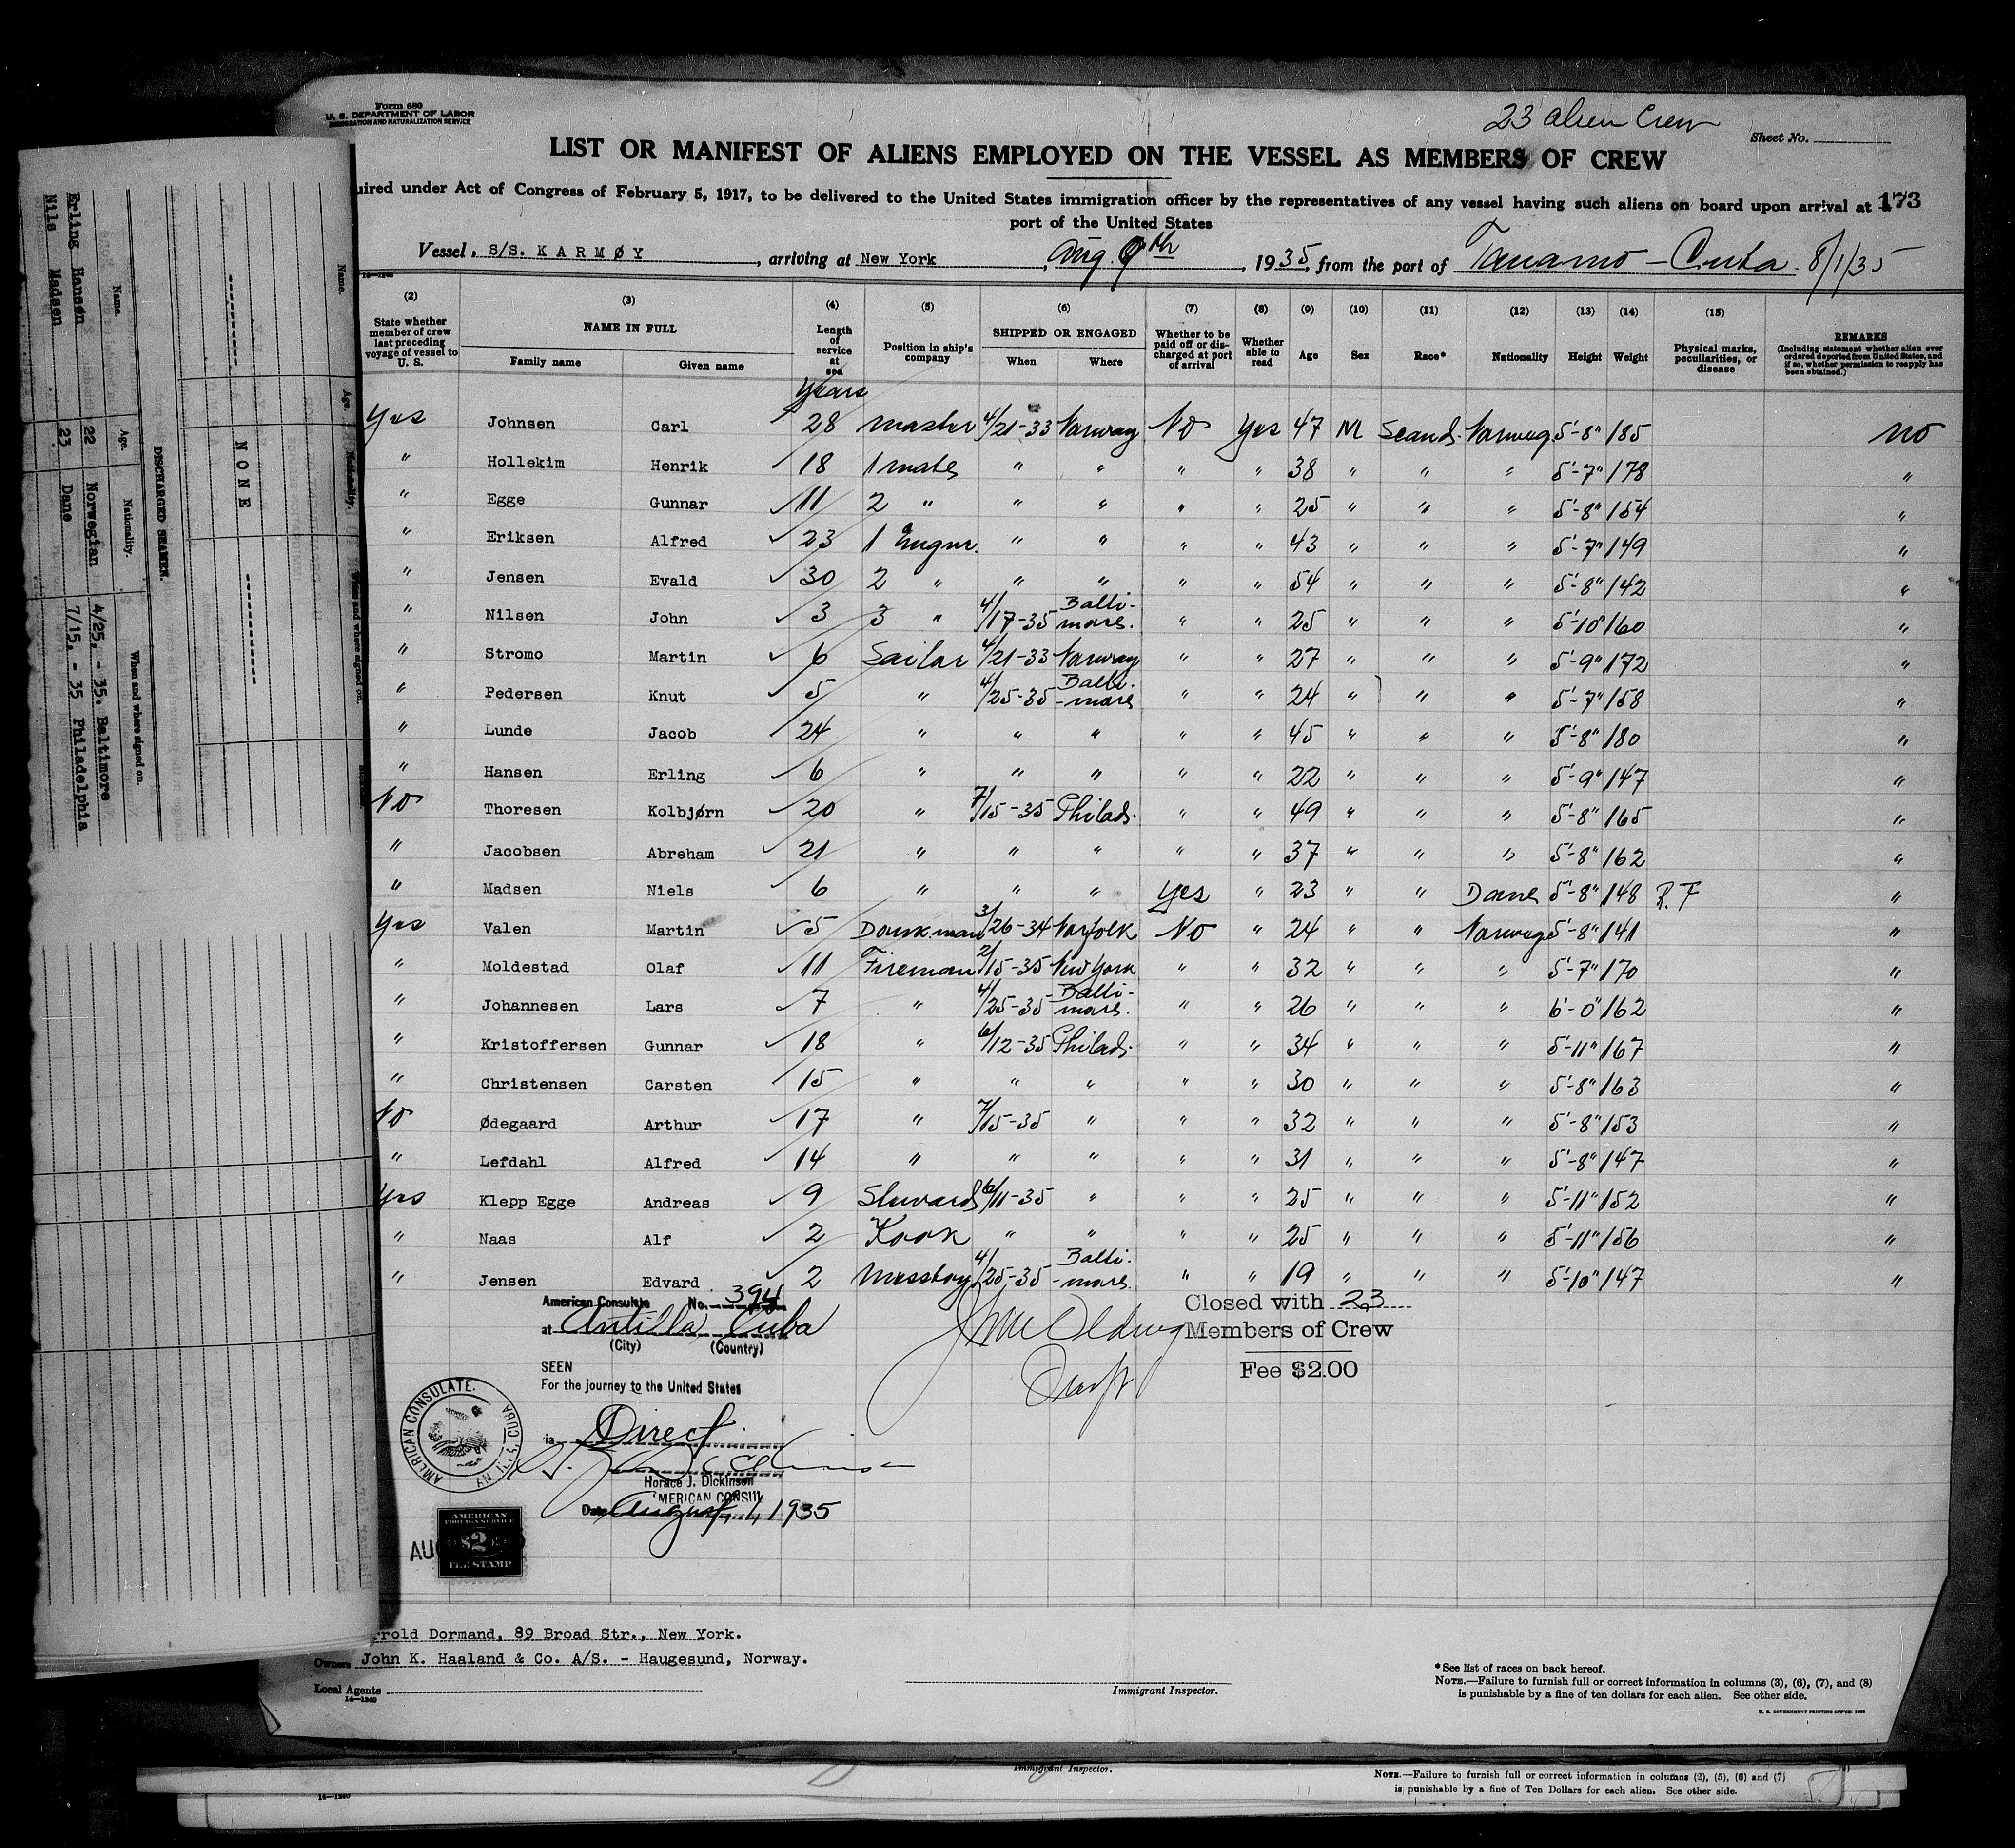 Form 680
U. S. DEPARTMENT OF LABOR
IMMIGRATION AND NATURALIZATION SERVICE
23 Alien Crew
Sheet No.
LIST OR MANIFEST OF ALIENS EMPLOYED ON THE VESSEL AS MEMBERS OF CREW
uired under Act of Congress of February 5, 1917, to be delivered to the United States immigration officer by the representatives of any vessel having such aliens on board upon arrival at a 173
port of the United States
Vessel, S/S. KARMØY, arriving at New York, Aug. 9th, 1935, from the port of Tanamo - Cuba. 8/1/35
14-1240
(2) (3) (4) (5) (6) (7) (8) (9) (10) (11) (12) (13) (14) (15)
State whether member of crew last preceding voyage of vessel to U. S.
NAME IN FULL
Family name Given name
Length of service at sea
Position in ship's company
SHIPPED OR ENGAGED
When Where
Whether to be paid off or discharged at port of arrival
Whether able to read
Age Sex Race* Nationality Height Weight
Physical marks, peculiarities, or disease
REMARKS
(Including statement whether alien ever ordered deported from United States, and if so, whether permission to reapply has been obtained.)
Years
Yes Johnsen Carl 28 Master 4/21-33 Norway No Yes 47 M Scand. Norweg 5'-8" 185 no
" Hollekim Henrik 18 1 mate " " " " 38 " " " 5'-7" 178 "
" Egge Gunnar 11 2 " " " " " 25 " " " 5'-8" 154 "
" Eriksen Alfred 23 1 Engnr. " " " " 43 " " " 5'-7" 149 "
" Jensen Evald 30 2 " " " " " 54 " " " 5'-8" 142 "
" Nilsen John 3 3 " 4/17-35 Baltimore. " " 25 " " " 5'-10" 160 "
" Stromo Martin 6 Sailor 4/21-33 Norway " " 27 " " " 5'-9" 172 "
" Pedersen Knut 5 " 4/25-35 Balti-more " " 24 " " " 5'-7" 158 "
" Lunde Jacob 24 " " " " " 45 " " " 5'-8" 180 "
" Hansen Erling 6 " " " " " 22 " " " 5'-9" 147 "
No Thoresen Kolbjørn 20 " 7/15-35 Philad. " " 49 " " " 5'-8" 165 "
" Jacobsen Abreham 21 " " " " " 37 " " " 5'-8" 162 "
" Madsen Niels 6 " " " Yes " 23 " " Dane 5'-8" 148 R.F "
Yes Valen Martin 5 Donkman 3/26-34 Norfolk No " 24 " " Norweg 5'-8" 141 "
" Moldestad Olaf 11 Fireman 2/15-35 New York " " 32 " " " 5'-7" 170 "
" Johannesen Lars 7 " 4/25-35 Balti-more. " " 26 " " " 6'-0" 162 "
" Kristoffersen Gunnar 18 " 6/12-35 Philad. " " 34 " " " 5'-11" 167 "
" Christensen Carsten 15 " " " " " 30 " " " 5'-8" 163 "
No Ødegaard Arthur 17 " 7/15-35 " " " 32 " " " 5'-8" 153 "
" Lefdahl Alfred 14 " " " " " 31 " " " 5'-8" 147 "
Yes Klepp Egge Andreas 9 Stuvard 6/11-35 " " " 25 " " " 5'-11" 152 "
" Naas Alf 2 Kook " " " " 25 " " " 5'-11" 156 "
" Jensen Edvard 2 Messboy 4/25-35 Balti-more. " " 19 " " " 5'-10" 147 "
American Consulate No. 394
at Antilla Cuba
(City) (Country)
SEEN
For the journey to the United States
ia Direct
Horace J. Dickinson
AMERICAN CONSUL
Date August, 1, 1935
AMERICAN CONSULATE. ANTILLA, CUBA
AMERICAN FOREIGN SERVICE $2 FEE STAMP
AUG
Closed with 23
Members of Crew
Fee $2.00
rrold Dormand, 89 Broad Str., New York.
Owners John K. Haaland & Co. A/S. - Haugesund, Norway.
Local Agents
14-1240
Immigrant Inspector.
*See list of races on back hereof.
NOTE.—Failure to furnish full or correct information in columns (3), (6), (7), and (8)
is punishable by a fine of ten dollars for each alien. See other side.
U. S. GOVERNMENT PRINTING OFFICE: 1933
Immigrant Inspector.
NOTE.—Failure to furnish full or correct information in columns (2), (5), (6) and (7)
is punishable by a fine of Ten Dollars for each alien. See other side.
14-1240
Name. Age. Nationality. When and where signed on.
NONE
DISCHARGED SEAMEN.
Name. Age. Nationality. When and where signed on.
Erling Hansen 22 Norwegian 4/25, - 35. Baltimore
Nils Madsen 23 Dane 7/15, - 35 Philadelphia